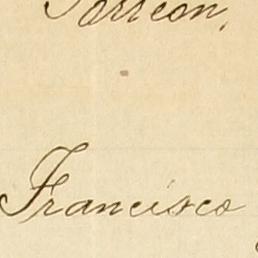 Torreon,
Francisco